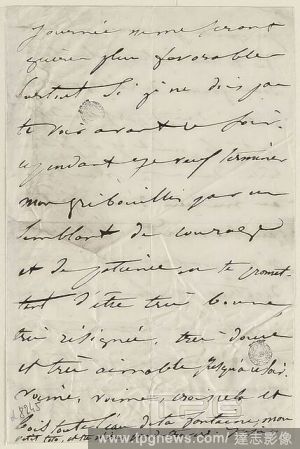 journée ne me seront
guère plus favorables
surtout si je ne dois pas
te voir avant ce soir.
cependant je veux terminer
mon gribouillis par un
semblant de courage
et de patience en te promet-
tant d'être très bonne
très résignée, très douce
et très aimable jusqu'à ce soir.
Voime, voime, crois-le et
bois toute l'eau de ta fontaine, mon
petit toto,
8245
TPG
www.tpgnews.com / 達志影像